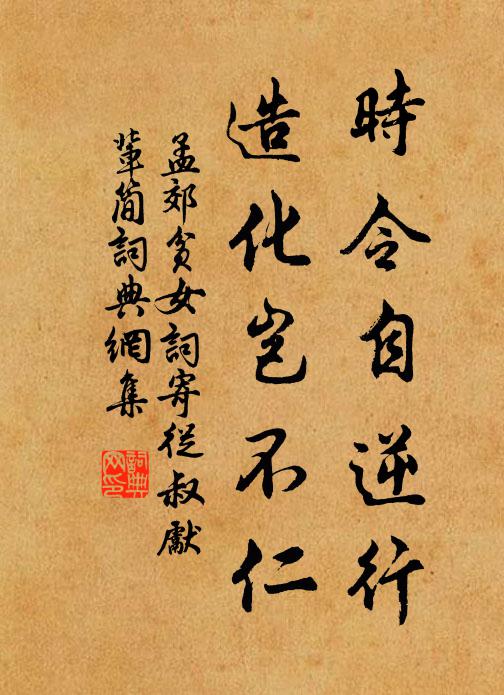 時令自逆行
造化岂不仁
孟郊貧女詞寄從叔獻
輩簡詞典網集
詞典
网印